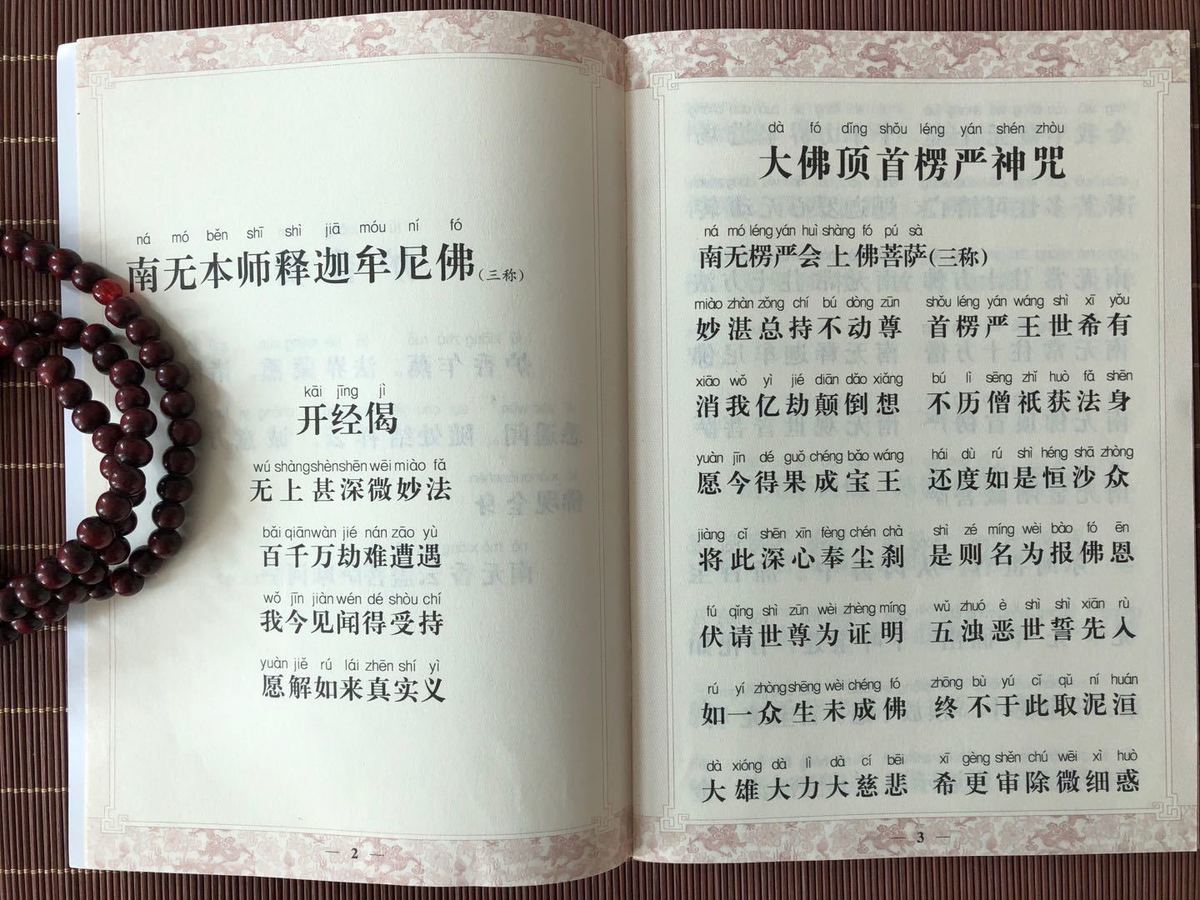 ná mó běn shī shì jiā móu ní fó
南无本师释迦牟尼佛(三称)
kāi jīng jì
开经偈
wú shàng shèn shēn wēi miào fǎ
无上甚深微妙法
bǎi qiān wàn jié nán zāo yù
百千万劫难遭遇
wǒ jīn jiàn wén dé shòu chí
我今见闻得受持
yuàn jiě rú lái zhēn shí yì
愿解如来真实义
— 2 —
dà fó dǐng shǒu léng yán shén zhòu
大佛顶首楞严神咒
ná mó léng yán huì shàng fó pú sà
南无楞严会上佛菩萨(三称)
miào zhàn zǒng chí bú dòng zūn shǒu léng yán wáng shì xī yǒu
妙湛总持不动尊 首楞严王世希有
xiāo wǒ yì jié diān dǎo xiǎng bú lì sēng zhǐ huò fǎ shēn
消我亿劫颠倒想 不历僧祇获法身
yuàn jīn dé guǒ chéng bǎo wáng hái dù rú shì héng shā zhòng
愿今得果成宝王 还度如是恒沙众
jiàng cǐ shēn xīn fèng chén chà shì zé míng wèi bào fó ēn
将此深心奉尘刹 是则名为报佛恩
fú qǐng shì zūn wèi zhèng míng wǔ zhuó è shì shì xiān rù
伏请世尊为证明 五浊恶世誓先入
rú yí zhòng shēng wèi chéng fó zhōng bù yú cǐ qǔ ní huán
如一众生未成佛 终不于此取泥洹
dà xióng dà lì dà cí bēi xī gèng shěn chú wēi xì huò
大雄大力大慈悲 希更审除微细惑
— 3 —